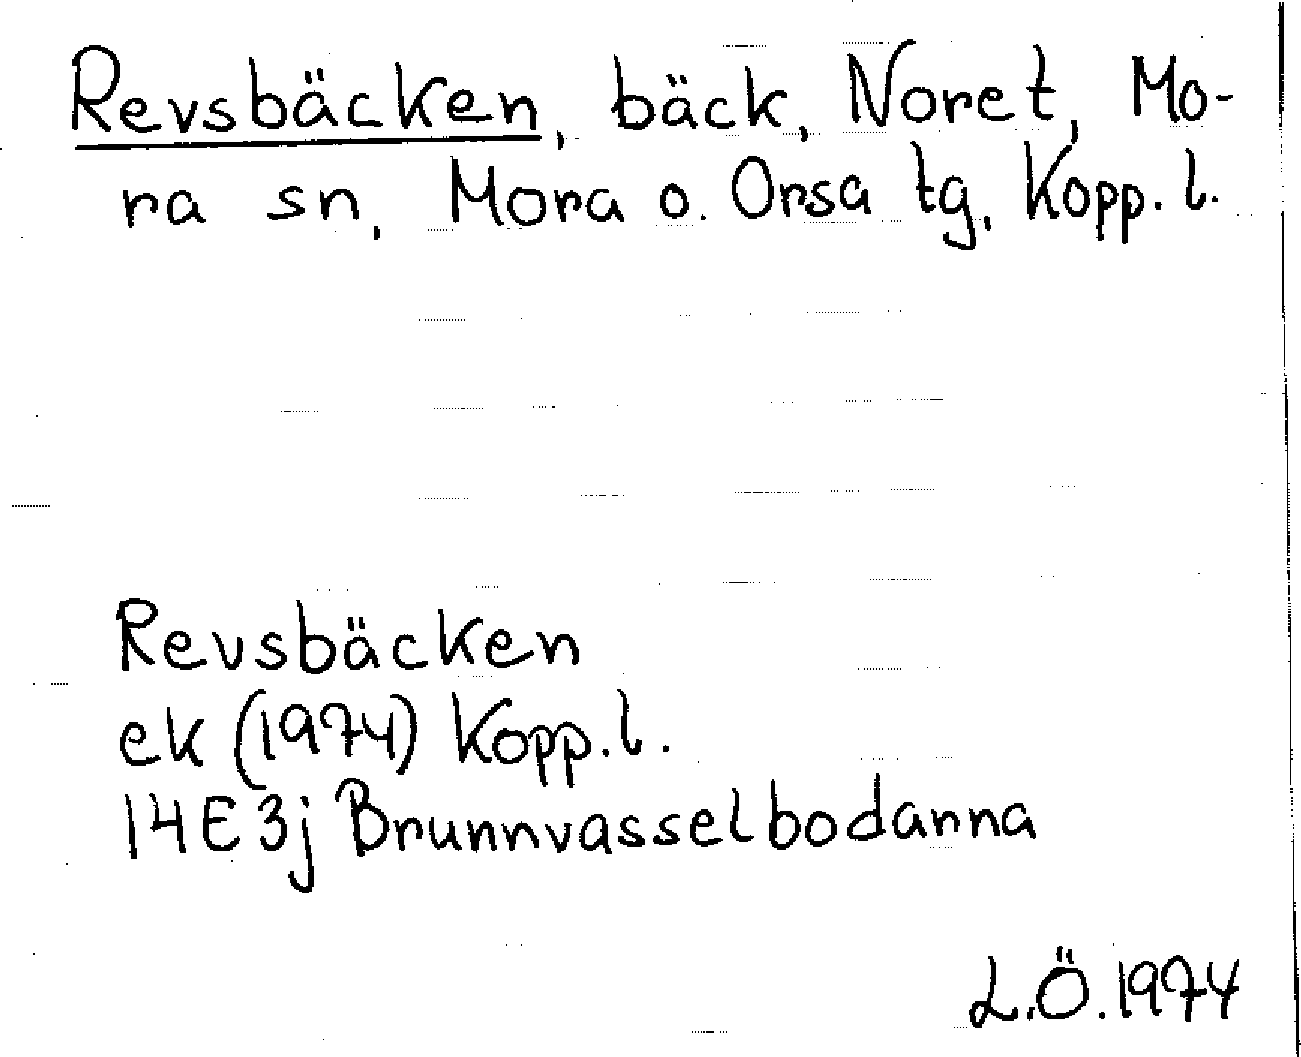 Revsbäcken, bäck, Noret, Mo-
ra sn, Mora o. Orsa tg, Kopp. l.
Revsbäcken
ek (1974) Kopp. l.
14E3j Brunnvasselbodarna
L.Ö. 1974